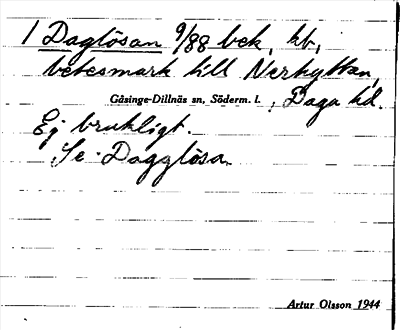 1 Daglösan 9/88 bek, kb,
betesmark till Nerhyttan,
Gåsinge-Dillnäs sn, Söderm. l., Daga hd.
Ej brukligt.
Se Dagglösa.
Artur Olsson 1944